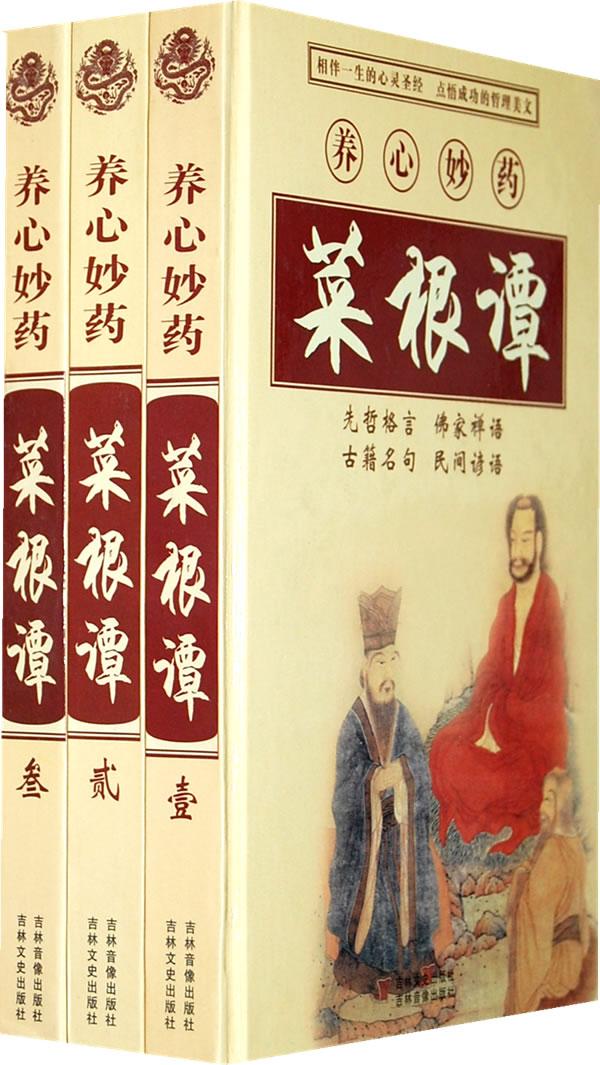 相伴一生的心灵圣经 点悟成功的哲理美文
养心妙药
菜根谭
先哲格言 佛家禅语
古籍名句 民间谚语
吉林文史出版社
吉林音像出版社
养心妙药
菜根谭
壹
吉林音像出版社
吉林文史出版社
养心妙药
菜根谭
贰
吉林音像出版社
吉林文史出版社
养心妙药
菜根谭
叁
吉林音像出版社
吉林文史出版社